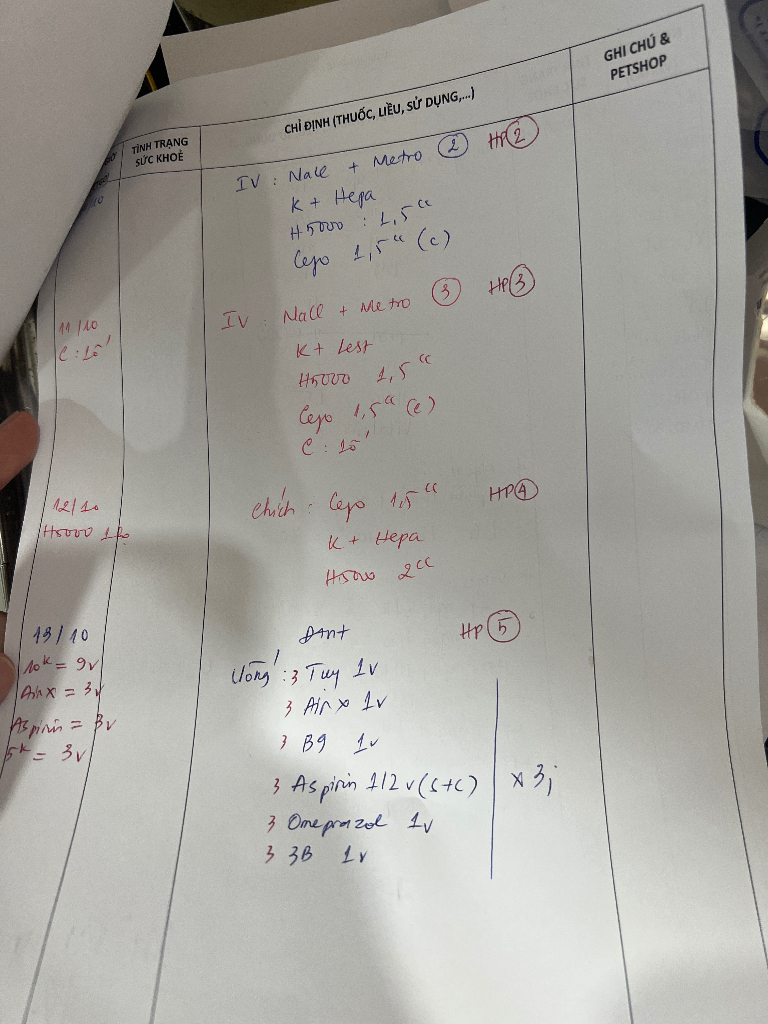 TÌNH TRẠNG
SỨC KHOẺ
CHỈ ĐỊNH (THUỐC, LIỀU, SỬ DỤNG,...)
GHI CHÚ &
PETSHOP
IV : Nacl + Metro 2 HP 2
K + Hepa
H5000 : 1,5cc
Cepo 1,5cc (c)
11/10
C : 15'
IV : Nacl + Metro 3 HP 3
K + Lest
H5000 1,5cc
Cepo 1,5cc (c)
C : 15'
12/10
H5000
chích : Cepo 1,5cc HP 4
K + Hepa
H5000 2cc
13/10
HP 5
10k = 9v
Uống : 3 Tuy 1v
Ainx = 3v
3 Ainx 1v
Aspirin = 3v
3 B9 1v
5k = 3v
3 Aspirin 1/2v (s+c) x 3j
3 Omeprazol 1v
3 3B 1v